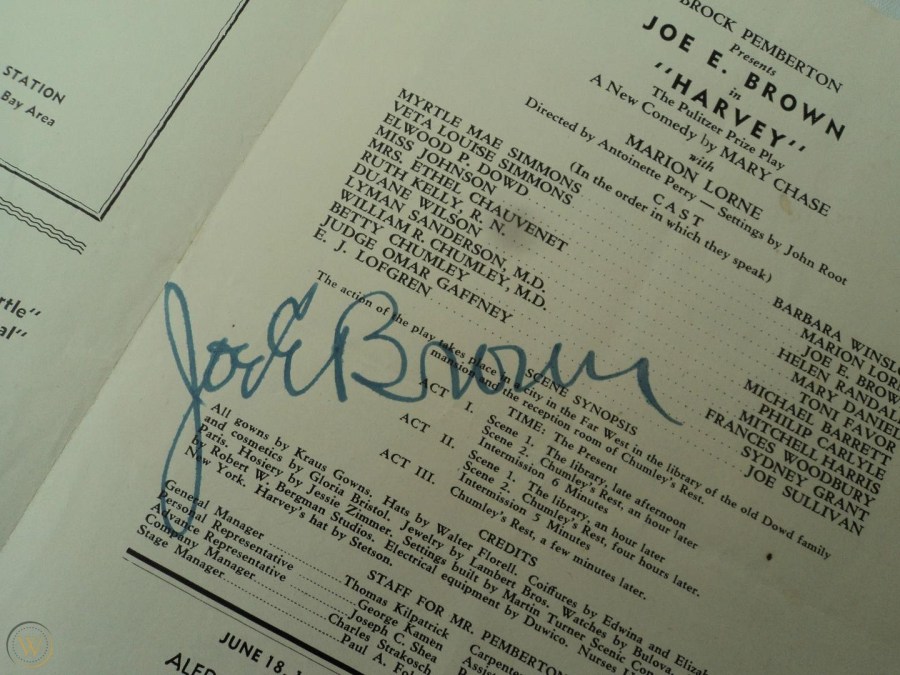 STATION
Bay Area
rtle"
al"
BROCK PEMBERTON
Presents
JOE E. BROWN
in
"HARVEY"
The Pulitzer Prize Play
A New Comedy by MARY CHASE
with
MARION LORNE
Directed by Antoinette Perry — Settings by John Root
CAST
(In the order in which they speak)
MYRTLE MAE SIMMONS BARBARA WINSL
VETA LOUISE SIMMONS MARION LOR
ELWOOD P. DOWD JOE E. BROW
MISS JOHNSON HELEN RANDAL
MRS. ETHEL CHAUVENET MARY DANIE
RUTH KELLY, R. N. TONI FAVOR
DUANE WILSON MICHAEL BARRETT
LYMAN SANDERSON, M.D. PHILIP CARLYLE
WILLIAM R. CHUMLEY, M.D. MITCHELL HARRIS
BETTY CHUMLEY FRANCES WOODBURY
JUDGE OMAR GAFFNEY SYDNEY GRANT
E. J. LOFGREN JOE SULLIVAN
Joe E Brown
SCENE SYNOPSIS
The action of the play takes place in a city in the Far West in the library of the old Dowd family
mansion and the reception room of Chumley's Rest.
TIME: The Present
ACT I. Scene 1. The library, late afternoon
Scene 2. Chumley's Rest, an hour later
Intermission 6 Minutes
ACT II. Scene 1. The library, an hour later
Scene 2. Chumley's Rest, four hours later.
Intermission 5 Minutes
ACT III. Chumley's Rest, a few minutes later.
CREDITS
All gowns by Kraus Gowns. Hats by Walter Florell. Coiffures by Edwina and Elizab
and cosmetics by Gloria Bristol. Jewelry by Lambert Bros. Watches by Bulova.
Paris. Hosiery by Jessie Zimmer. Settings built by Martin Turner Scenic Con
by Robert W. Bergman Studios. Electrical equipment by Duwico. Nurses U
York. Harvey's hat by Stetson.
STAFF FOR MR. PEMBERTON
General Manager Thomas Kilpatrick
Personal Representative George Kamen
Advance Representative Joseph C. Shea
Company Manager Charles Strakosch
Stage Manager Paul A. Fol
Carpenter
Assis
JUNE 18, 1
ALFR
W